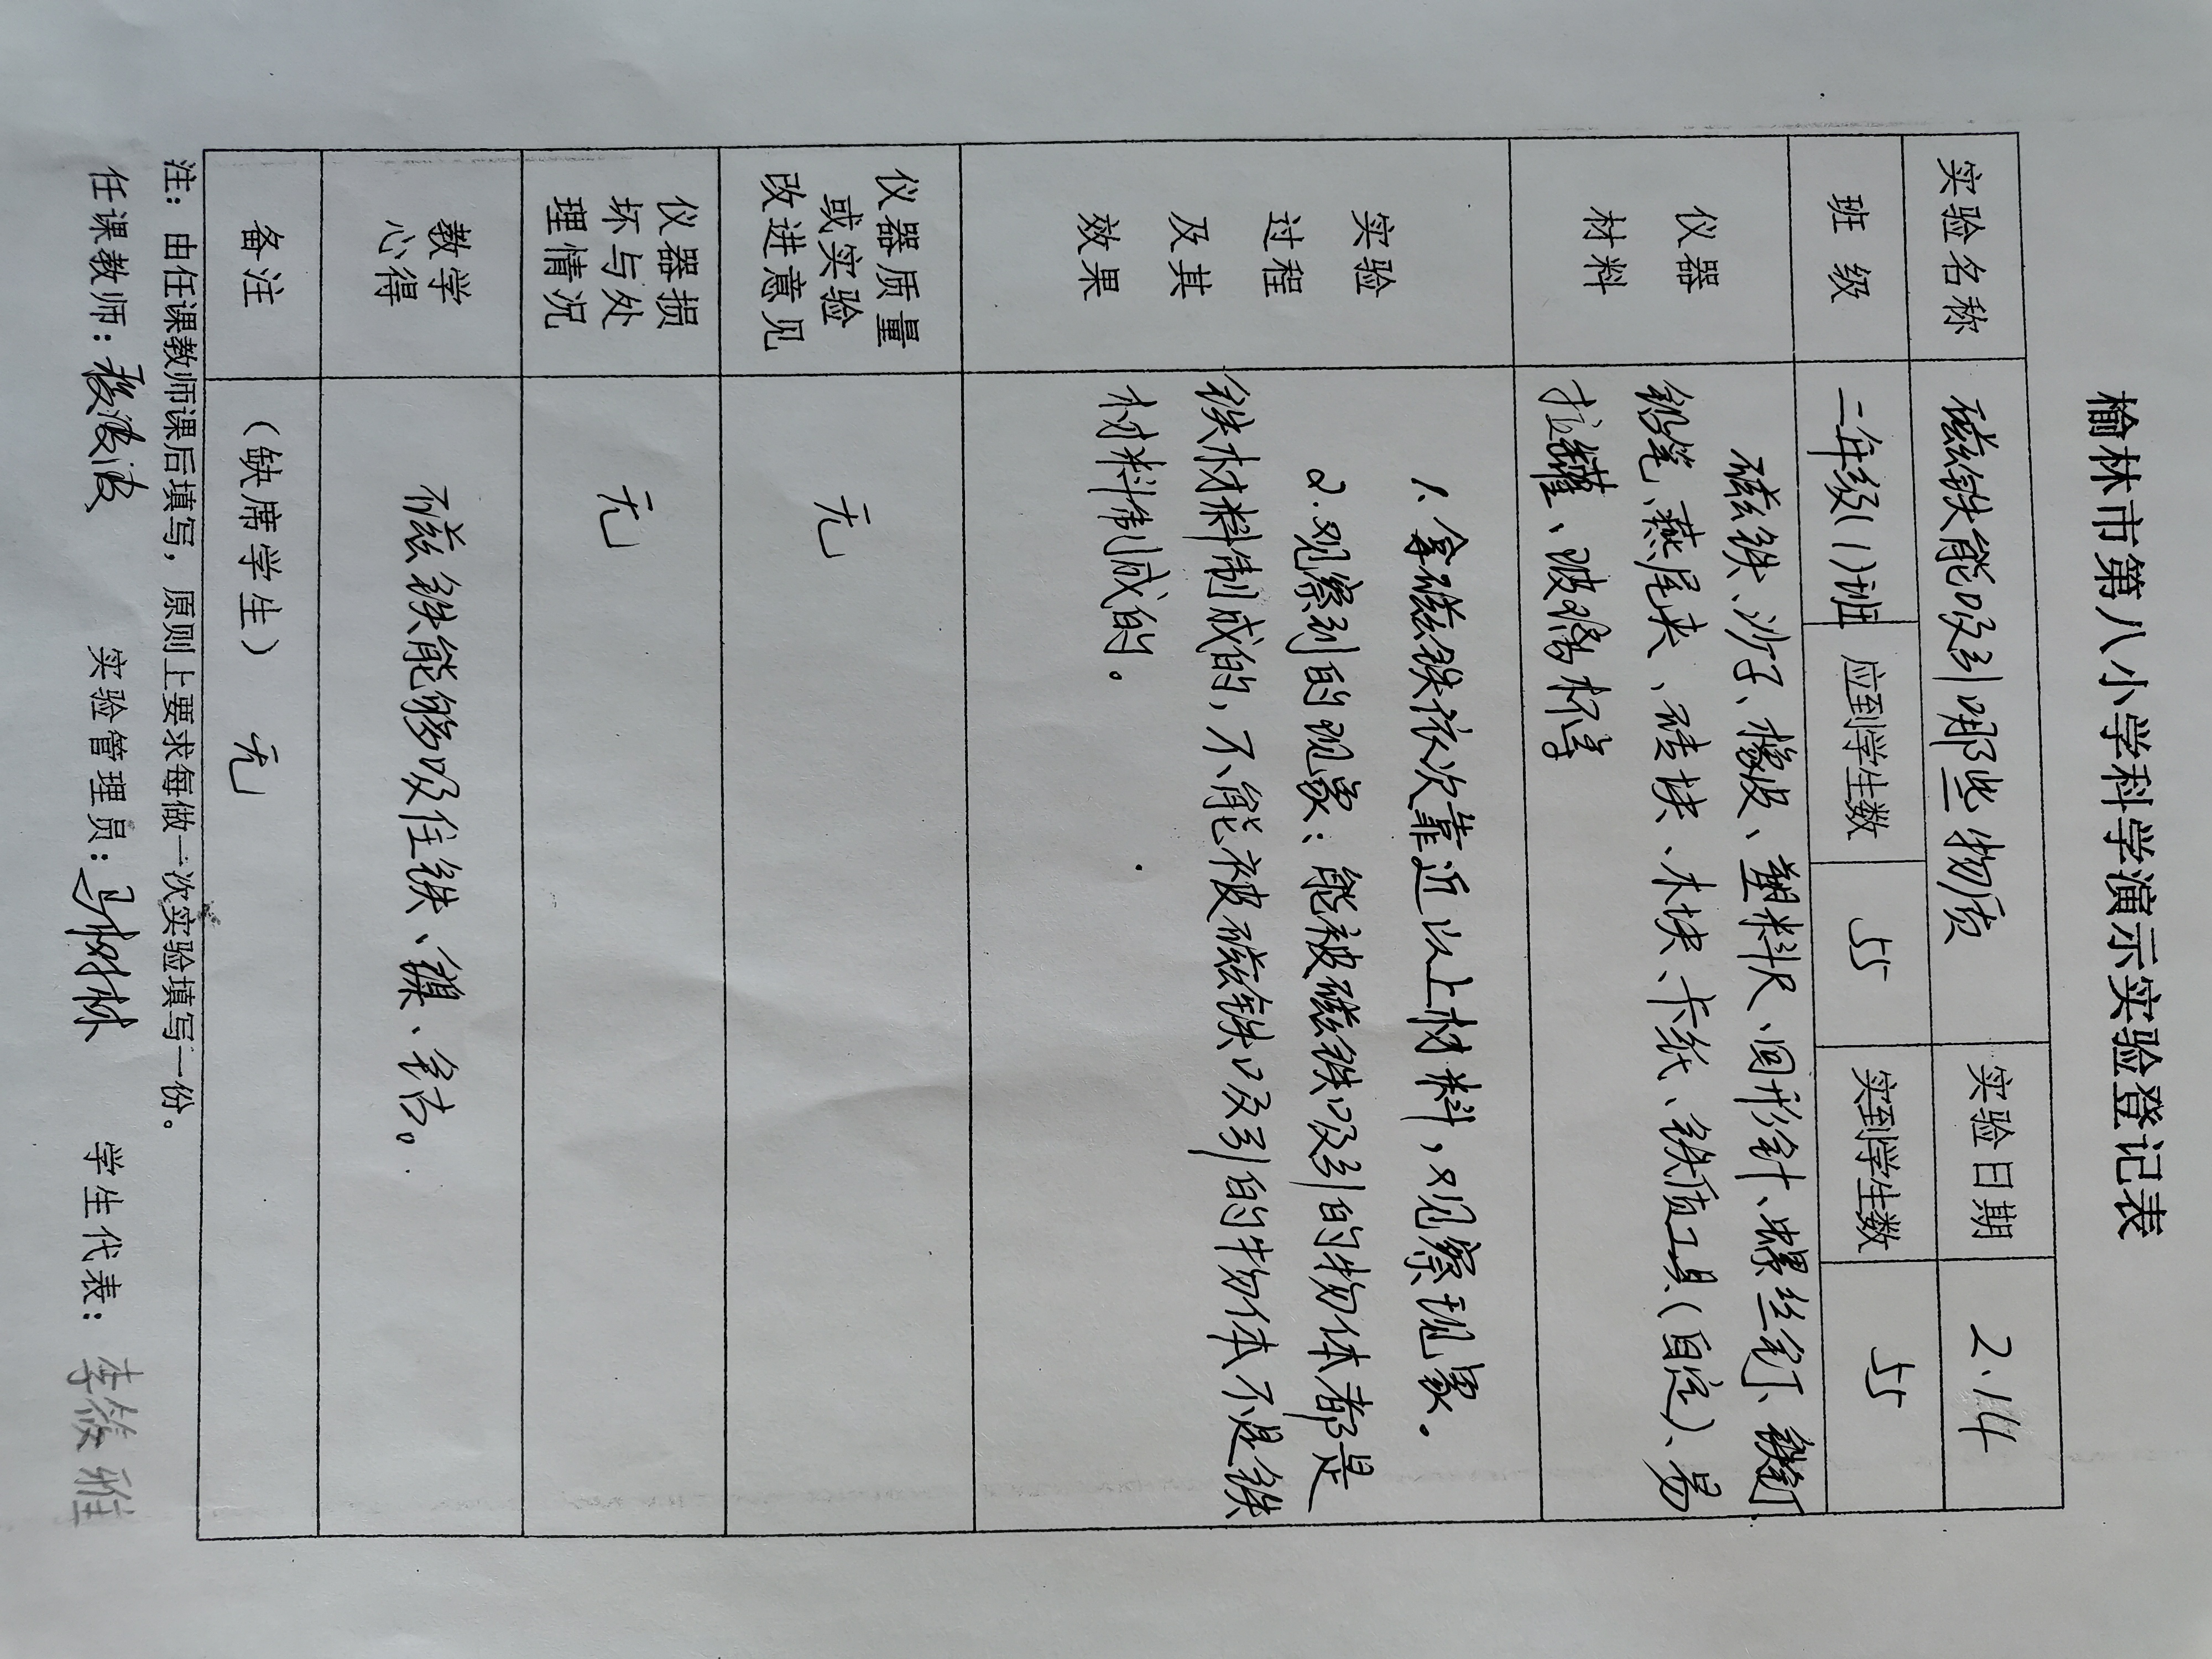 榆林市第八小学科学演示实验登记表
实验名称 磁铁能吸引哪些物质 实验日期 2.14
班级 二年级(1)班 应到学生数 55 实到学生数 55
仪器
材料
磁铁、沙子、橡皮、塑料尺、回形针、螺丝钉、铁钉
铅笔、燕尾夹、砖块、木块、卡纸、铁质工具(自定)、易
拉罐、玻璃杯等
实验
过程
及其
效果
1、拿磁铁依次靠近以上材料,观察现象.
2.观察到的现象:能被磁铁吸引的物体都是
铁材料制成的,不能被磁铁吸引的物体不是铁
材料制成的.
仪器质量
或实验
改进意见
无
仪器损
坏与处
理情况
无
教学
心得
磁铁能够吸住铁、镍、钴。
备注 (缺席学生) 无
注:由任课教师课后填写,原则上要求每做一次实验填写一份。
任课教师: 实验管理员:马树林 学生代表:李筱雅